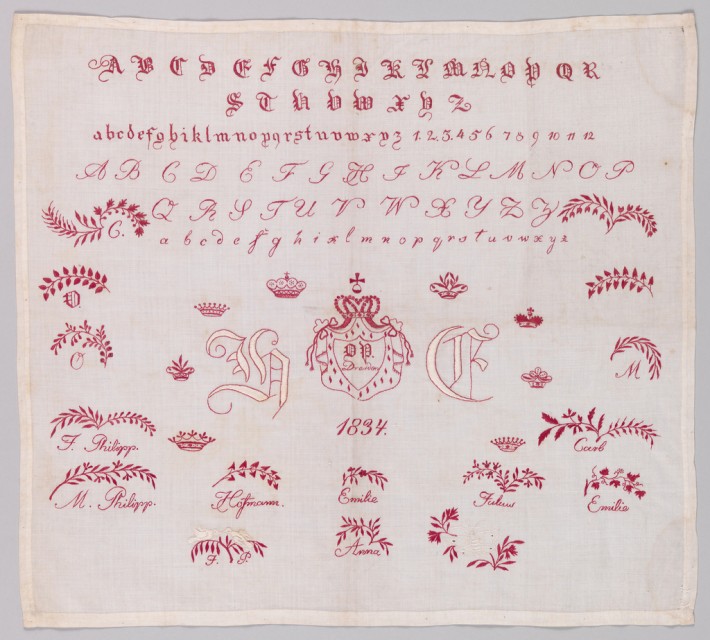 A B C D E F G H I K L M N O P Q R
S T U V W X Y Z
a b c d e f g h i k l m n o p q r s t u v w x y z 1. 2. 3. 4 5 6 7 8 9 10 11 12
A B C D E F G H I K L M N O P
Q R S T U V W X Y Z
C.
a b c d e f g h i k l m n o p q r s t u v w x y z
O
M
H
E
1834.
F. Philipp.
Carl
M. Philipp.
Hofmann.
Emilie
Julius
Emilie
F. P.
Anna